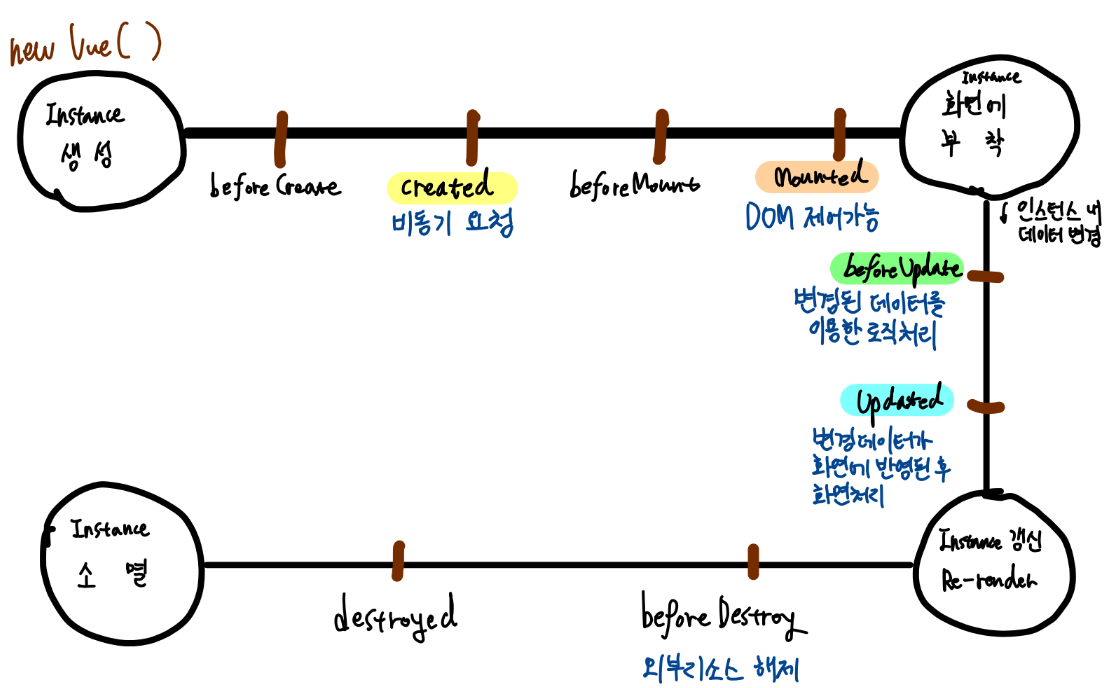 new Vue( )
Instance
생성
beforeCreate
created
비동기 요청
beforeMount
Mounted
DOM 제어가능
Instance
화면에
부 착
↓ 인스턴스 내
데이터 변경
beforeUpdate
변경된 데이터를
이용한 로직처리
Updated
변경데이터가
화면에 반영된 후
화면처리
Instance 갱신
Re-render
beforeDestroy
외부리소스 해제
destroyed
Instance
소 멸